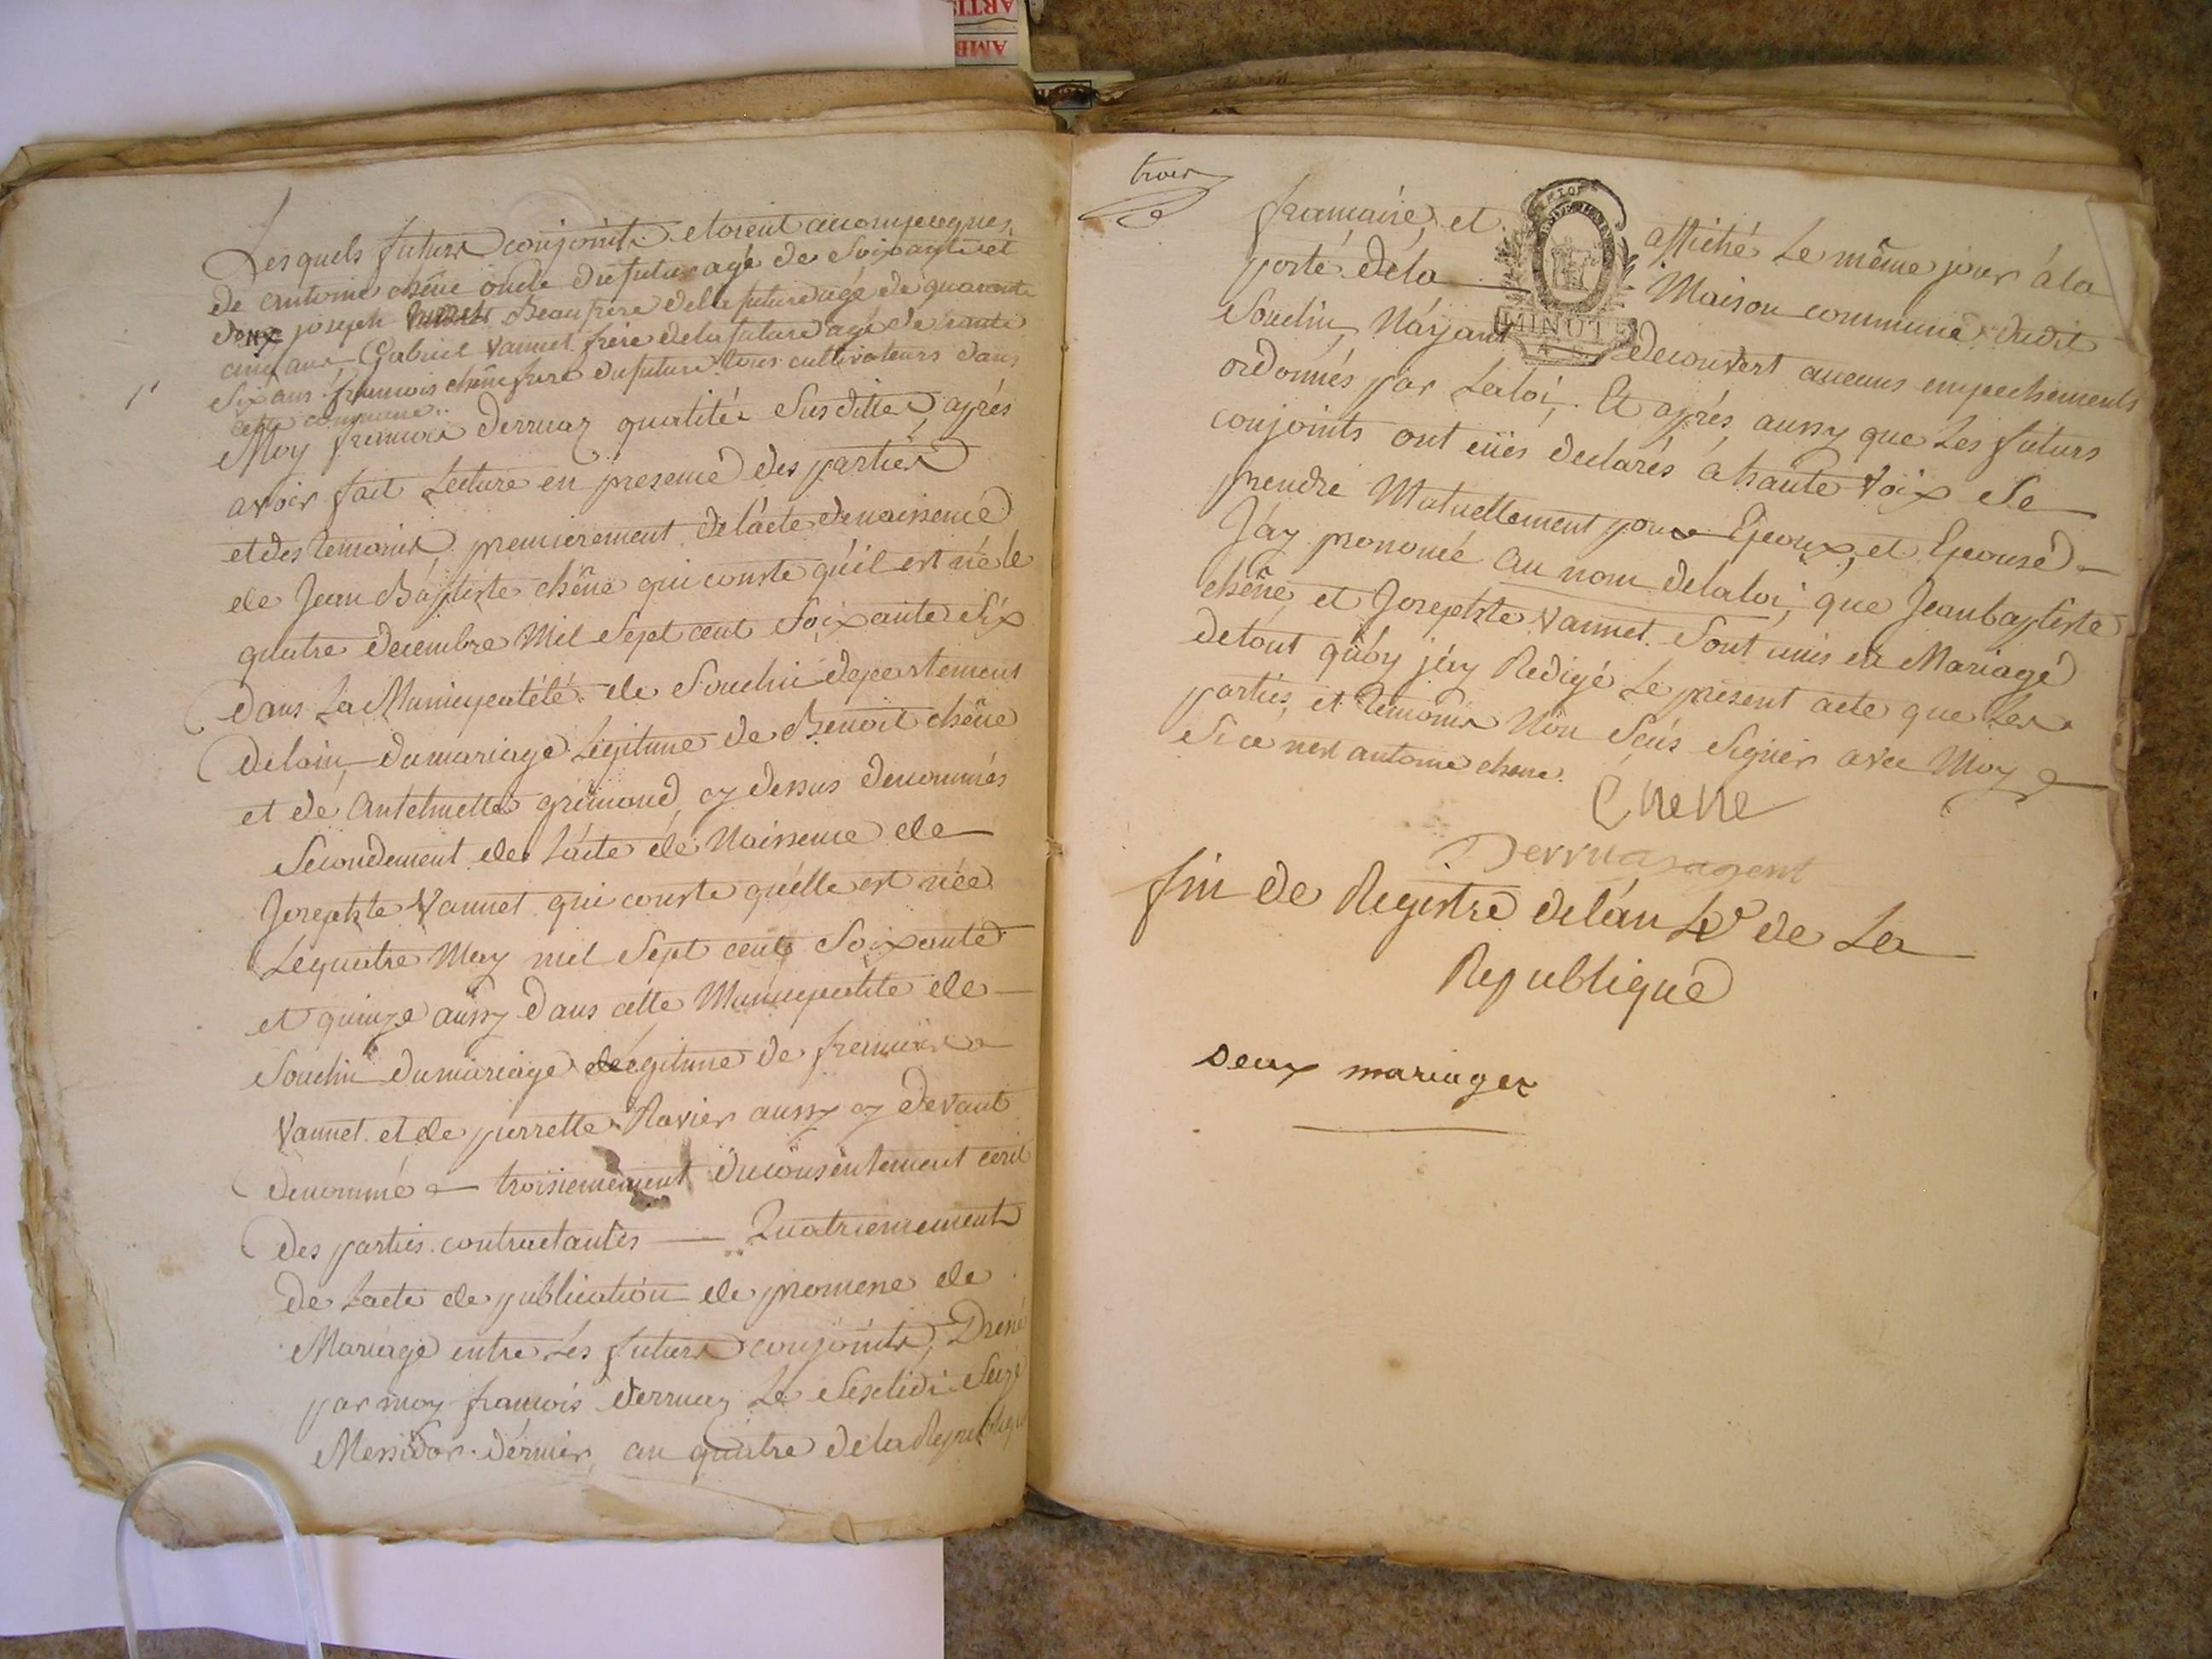 Lesquels futurs conjoints etoient accompagnés
de antoine chêne oncle du futur agé de Soixante et
deux joseph Beaufrere de la future agé de quarante
cinq ans, Gabriel Vannet frere de la future agé de trente
Six ans francois chêne frere du future tous cultivateurs dans
cette commune..
Moy francois Derruaz qualité Susditte, aprés
avoir fait Lecture en presence des parties
et des temoins, premierement de l'acte de naissence
de Jean Baptiste chêne qui conste qu'il est né le
quatre decembre Mil Sept cent Soixante Six
dans La Municipalité de Souclin departement
de lain, du mariage Legitime de Benoit chêne
et de Antelmette grimond, cy dessus denommés
Secondement de L'acte de Naissence de
Josephte Vannet qui conste qu'elle est née
Le quatre May mil Sept cent Soixante
et quinze aussy dans cette Municipalité de
Souclin du mariage Legitime de francois
Vannet et de pierrette Ravier aussy cy devant
denommé troisiemement du consentement
des parties contractantes — Quatriemement
de Lacte de publication de promesse de
Mariage entre Les futurs conjoints, Dresé
par moy francois derruaz Le Sextidi Seize
Messidor dernier, an quatre de la Republique
trois
francaise, et affiché Le même jour à la
porte de la Maison commune dudit
Souclin, N'áyant decouvert aucuns empechements
MINUTE
ordonnés par La loi, Et aprés aussy que Les futurs
conjoints ont eües declarés à haute Voix Se
prendre Mutuellement pour Epoux, et Epouse
J'áy prononcé au nom de la loi, que Jean baptiste
chêne, et Josephte Vannet Sont unis en Mariage
de tout quoy j'áy Redigé Le present acte que Les
parties, et temoins Non Sçus Signer avec Moy
Si ce nest antoine chene.
Chene
Derruaz agent
fin de Registre de l'án 4e de La
Republique
deux mariages